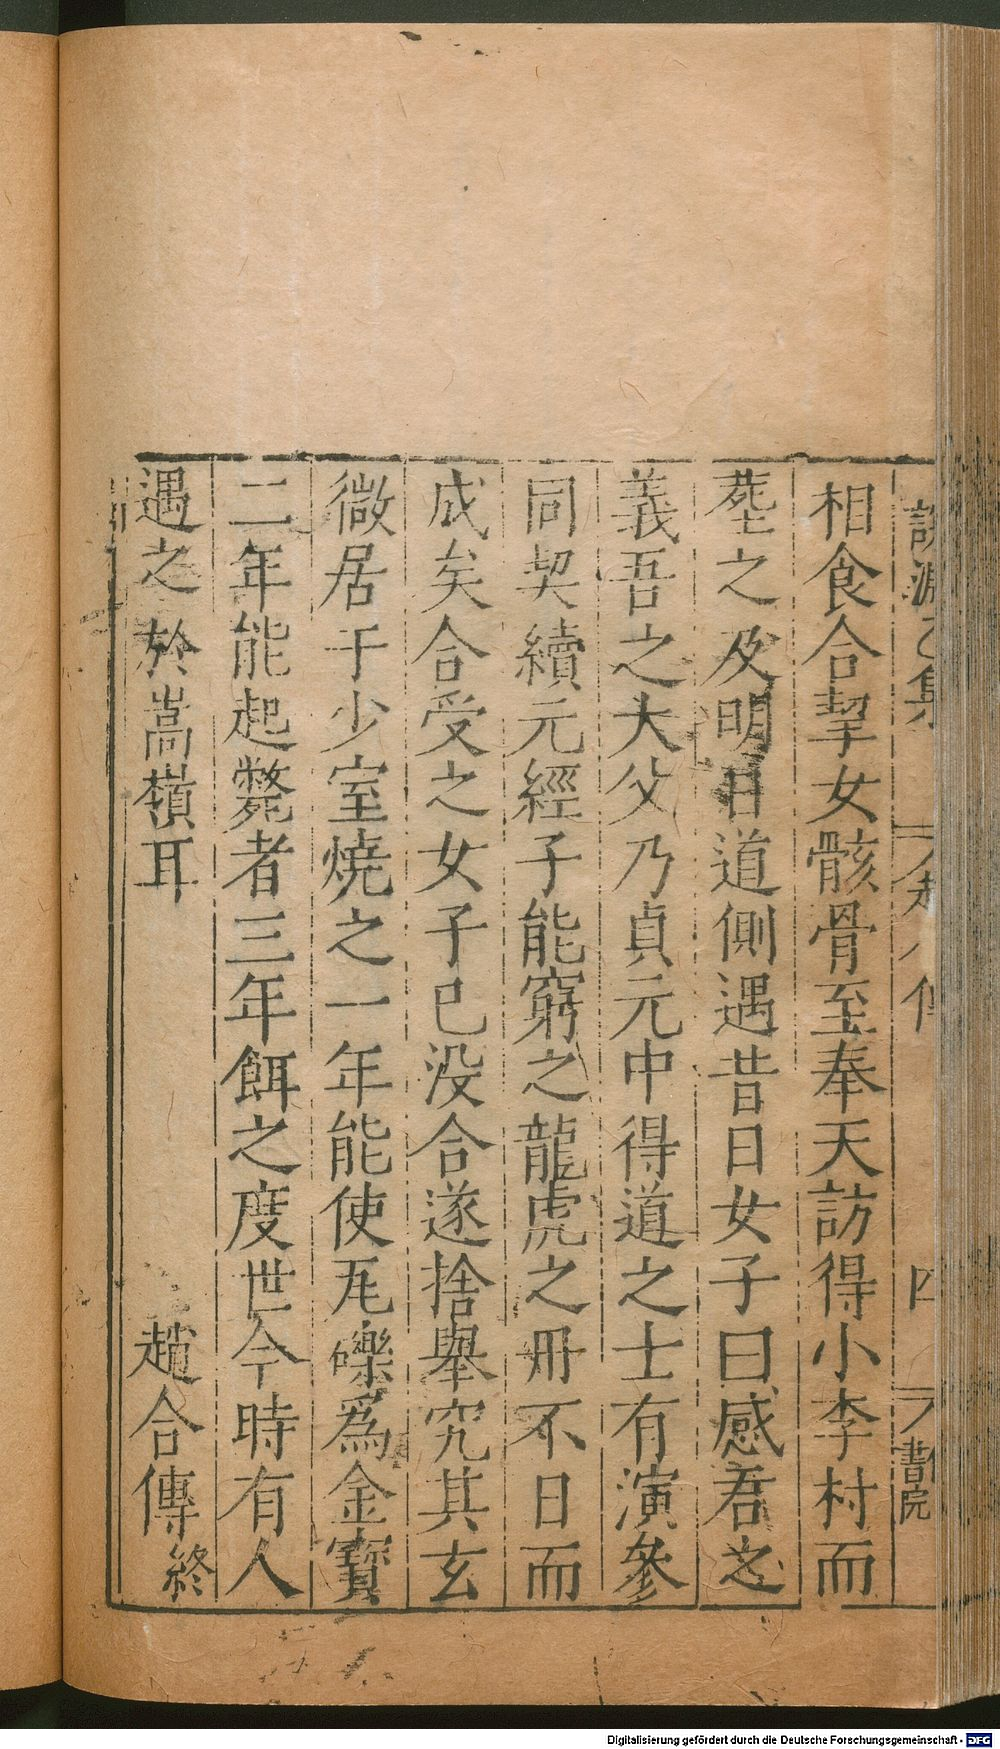 說淵乙集
趙合傳
四
書院
相食合挈女骸骨至奉天訪得小李村而
塟之及明日道側遇昔日女子曰感君之
義吾之大父乃貞元中得道之士有演參
同契續元經子能窮之龍虎之丹不日而
成矣合受之女子已没合遂捨舉究其玄
微居于少室燒之一年能使瓦礫爲金寶
二年能起斃者三年餌之度世今時有人
遇之於嵩嶺耳
趙合傳終
Digitalisierung gefördert durch die Deutsche Forschungsgemeinschaft - DFG